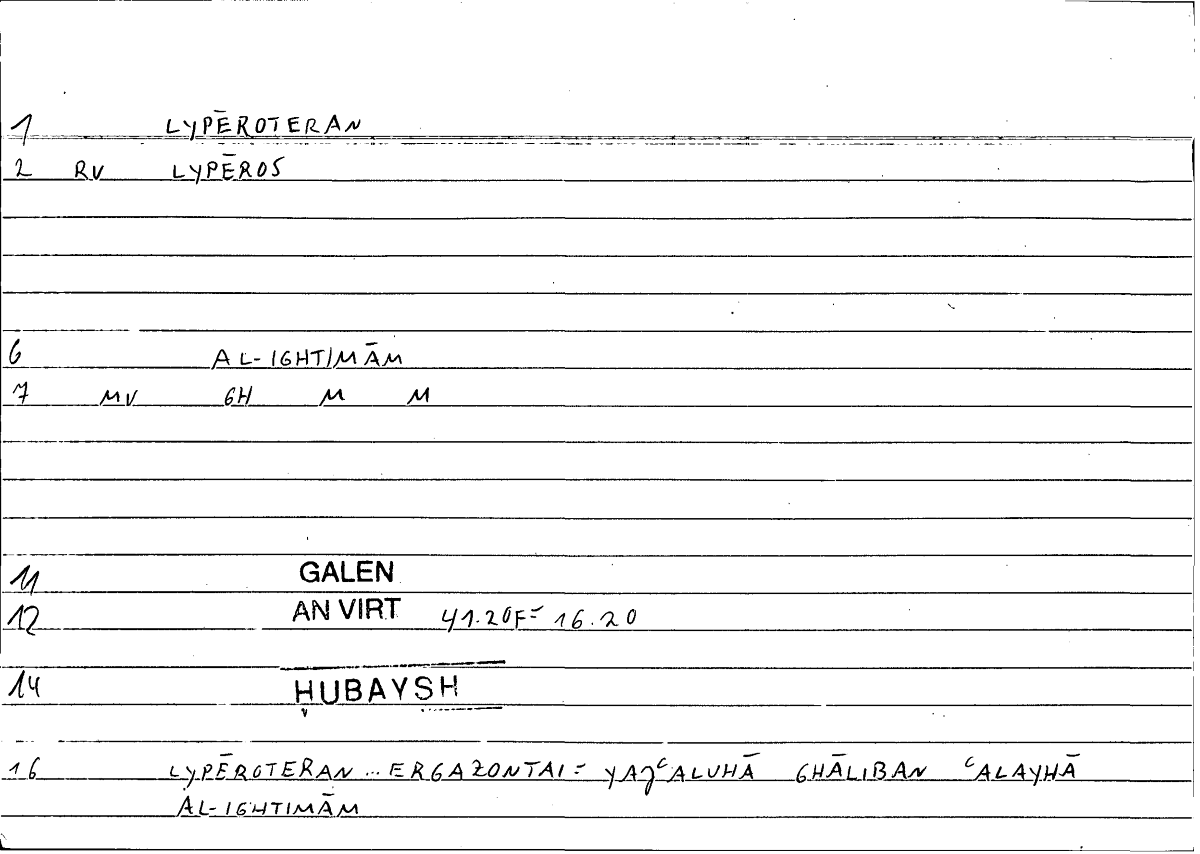 1 LYPĒROTERAN
2 RV LYPĒROS
6 AL-IGHTIMĀM
7 MV GH M M
11 GALEN
12 AN VIRT 41.20F= 16.20
14 HUBAYSH
16 LYPĒROTERAN ... ERGAZONTAI = YAJʿALUHĀ GHĀLIBAN ʿALAYHĀ
AL-IGHTIMĀM